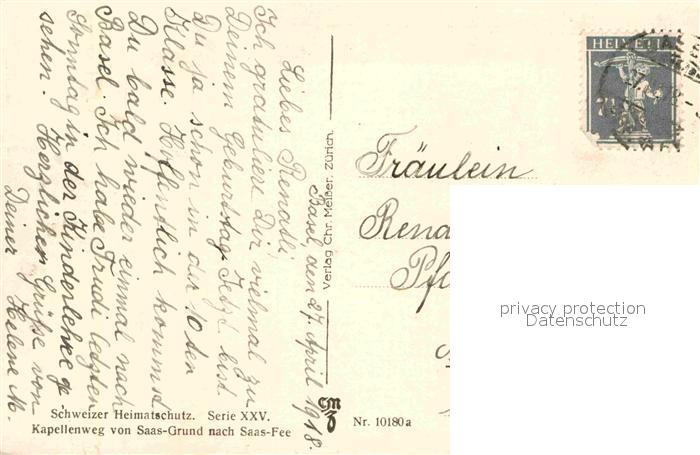 Basel, den 27. April 1918.
Liebes Renatli
Ich gratuliere Dir vielmal zu
Deinem Geburtstag. Jetzt bist
Du ja schon in der 10 den
Klasse. Hoffentlich kommst
Du bald wieder einmal nach
Basel. Ich habe Trudi letzten
Sonntag in der Kinderlehre ge
sehen. Herzlichen Grüsse von
Deiner Helene M.
Schweizer Heimatschutz. Serie XXV.
Kapellenweg von Saas-Grund nach Saas-Fee
Verlag Chr. Meisser, Zürich.
CMZ
Nr. 10180a
HELVETIA
7½
Fräulein
Rena
Pfa
privacy protection
Datenschutz